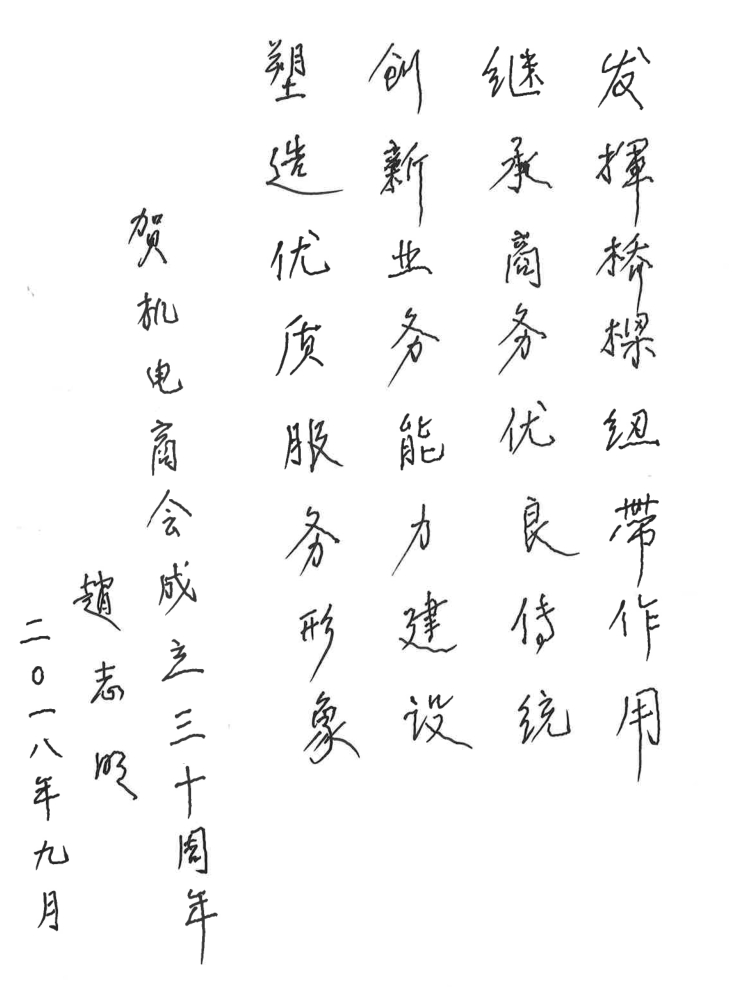 发揮桥樑纽帶作用
继承商务优良传统
创新业务能力建设
塑造优质服务形象
贺机电商会成立三十周年
趙志明
二〇一八年九月